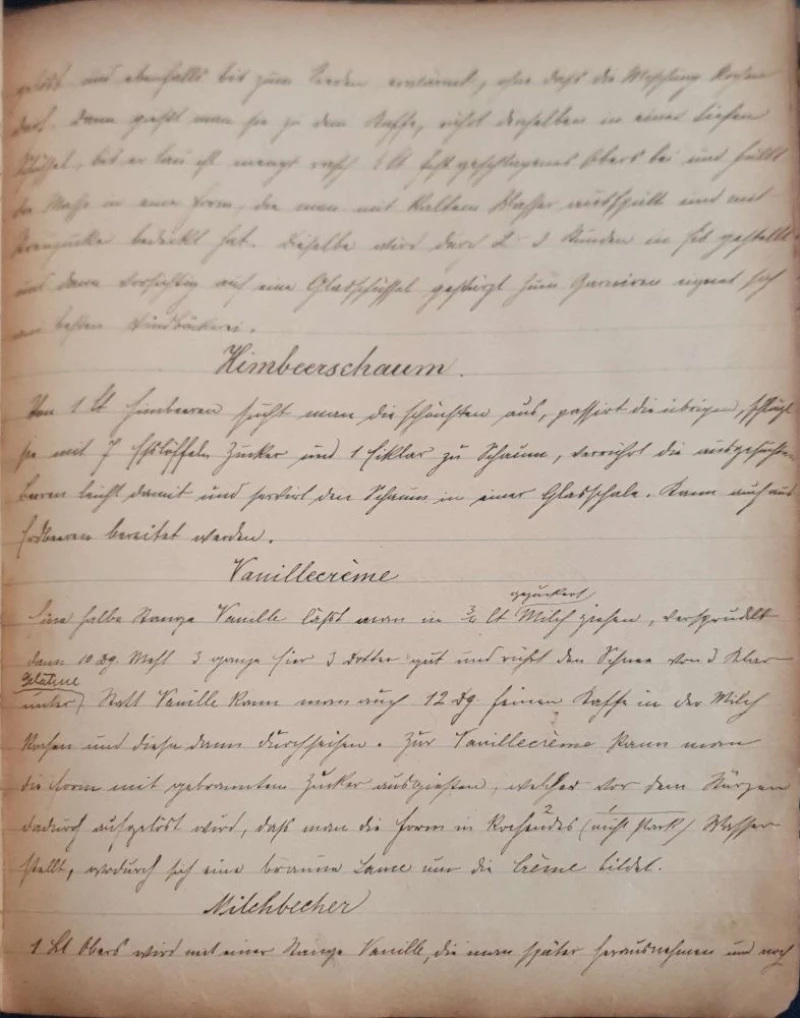 gelöst und ebenfalls bis zum Sieden erwärmt, ohne daß die Mischung kochen
darf. Dann gießt man sie zu dem Kaffe, rührt denselben in einer tiefen
Schüssel, bis er lau ist mengt rasch lt fest geschlagenes Obers bei und füllt
die Masse in eine Form, die man mit kaltem Wasser ausspült und mit
bedeckt hat. Dieselbe wird durch 2 3 Stunden in Eis gestellt
und dann vorsichtig auf eine Glasschüssel gestürzt zum Garniren eignet sich
am besten Windbäckerei.
Himbeerschaum.
Von 1 lt Himbeeren sucht man die schönsten aus, passirt die übrigen, schlägt
sie mit 7 Esslöffeln Zucker und 1 Eiklar zu Schaum, verrührt die ausgesuchten
Beeren leicht damit und servirt den Schaum in einer Glasschale. Kann auch aus
Erdbeeren bereitet werden.
Vanillecrème
gezuckert
Eine halbe Stange Vanille läßt man in 3/4 lt Milch ziehen, versprudelt
dann 10 dg. Mehl 3 ganze Eier 3 Dotter gut und rührt den Schnee von 3 Klar
Gelatine
unter) Statt Vanille kann man auch 12 dg feinen Kaffe in der Milch
kochen und diese dann durchseihen. Zur Vanillecrème kann man
die Form mit gebranntem Zucker ausgießen, welcher vor dem Stürzen
dadurch aufgelöst wird, daß man die Form in kochendes (nicht stark) Wasser
stellt, wodurch sich eine braune Sauce um die Crème bildet.
Milchbecher
1 Lt Obers wird mit einer Stange Vanille, die man später herausnehmen und noch